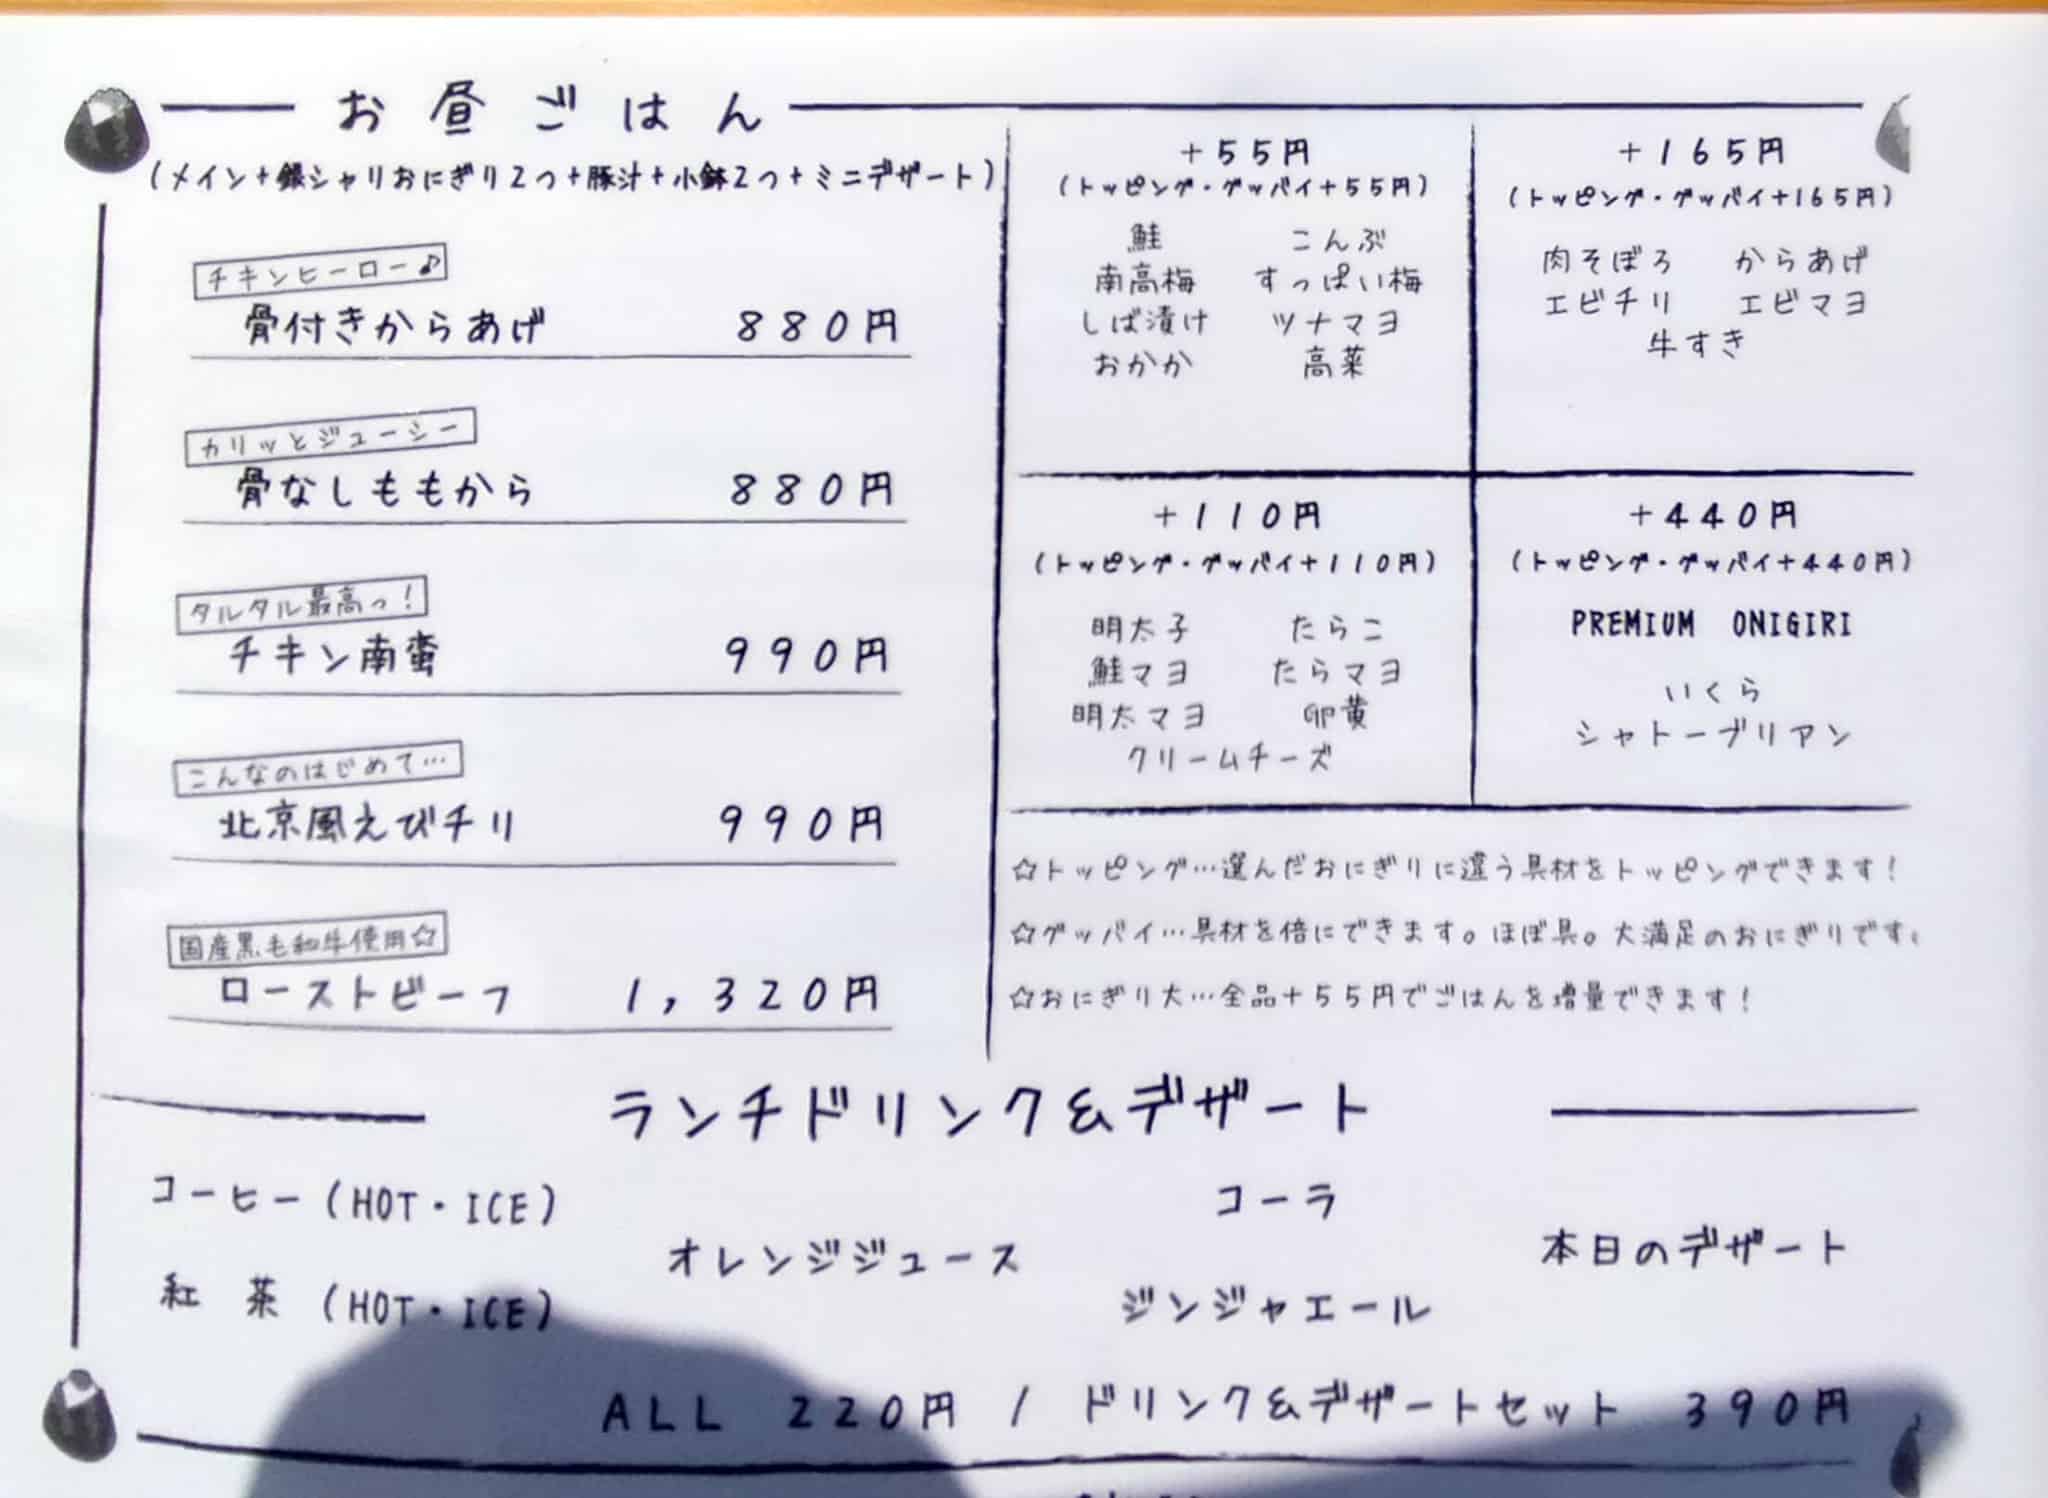 お昼ごはん
(メイン+銀シャリおにぎり2つ+豚汁+小鉢2つ+ミニデザート)
チキンヒーロー♪
骨付きからあげ 880円
カリッとジューシー
骨なしももから 880円
タルタル最高っ!
チキン南蛮 990円
こんなのはじめて…
北京風えびチリ 990円
国産黒毛和牛使用☆
ローストビーフ 1,320円
+55円
(トッピング・グッバイ+55円)
鮭 こんぶ
南高梅 すっぱい梅
しば漬け ツナマヨ
おかか 高菜
+165円
(トッピング・グッバイ+165円)
肉そぼろ からあげ
エビチリ エビマヨ
牛すき
+110円
(トッピング・グッバイ+110円)
明太子 たらこ
鮭マヨ たらマヨ
明太マヨ 卵黄
クリームチーズ
+440円
(トッピング・グッバイ+440円)
PREMIUM ONIGIRI
いくら
シャトーブリアン
☆トッピング…選んだおにぎりに違う具材をトッピングできます!
☆グッバイ…具材を倍にできます。ほぼ具。大満足のおにぎりです。
☆おにぎり大…全品+55円でごはんを増量できます!
ランチドリンク&デザート
コーヒー(HOT・ICE)
紅茶(HOT・ICE)
オレンジジュース
コーラ
ジンジャエール
本日のデザート
ALL 220円 / ドリンク&デザートセット 390円